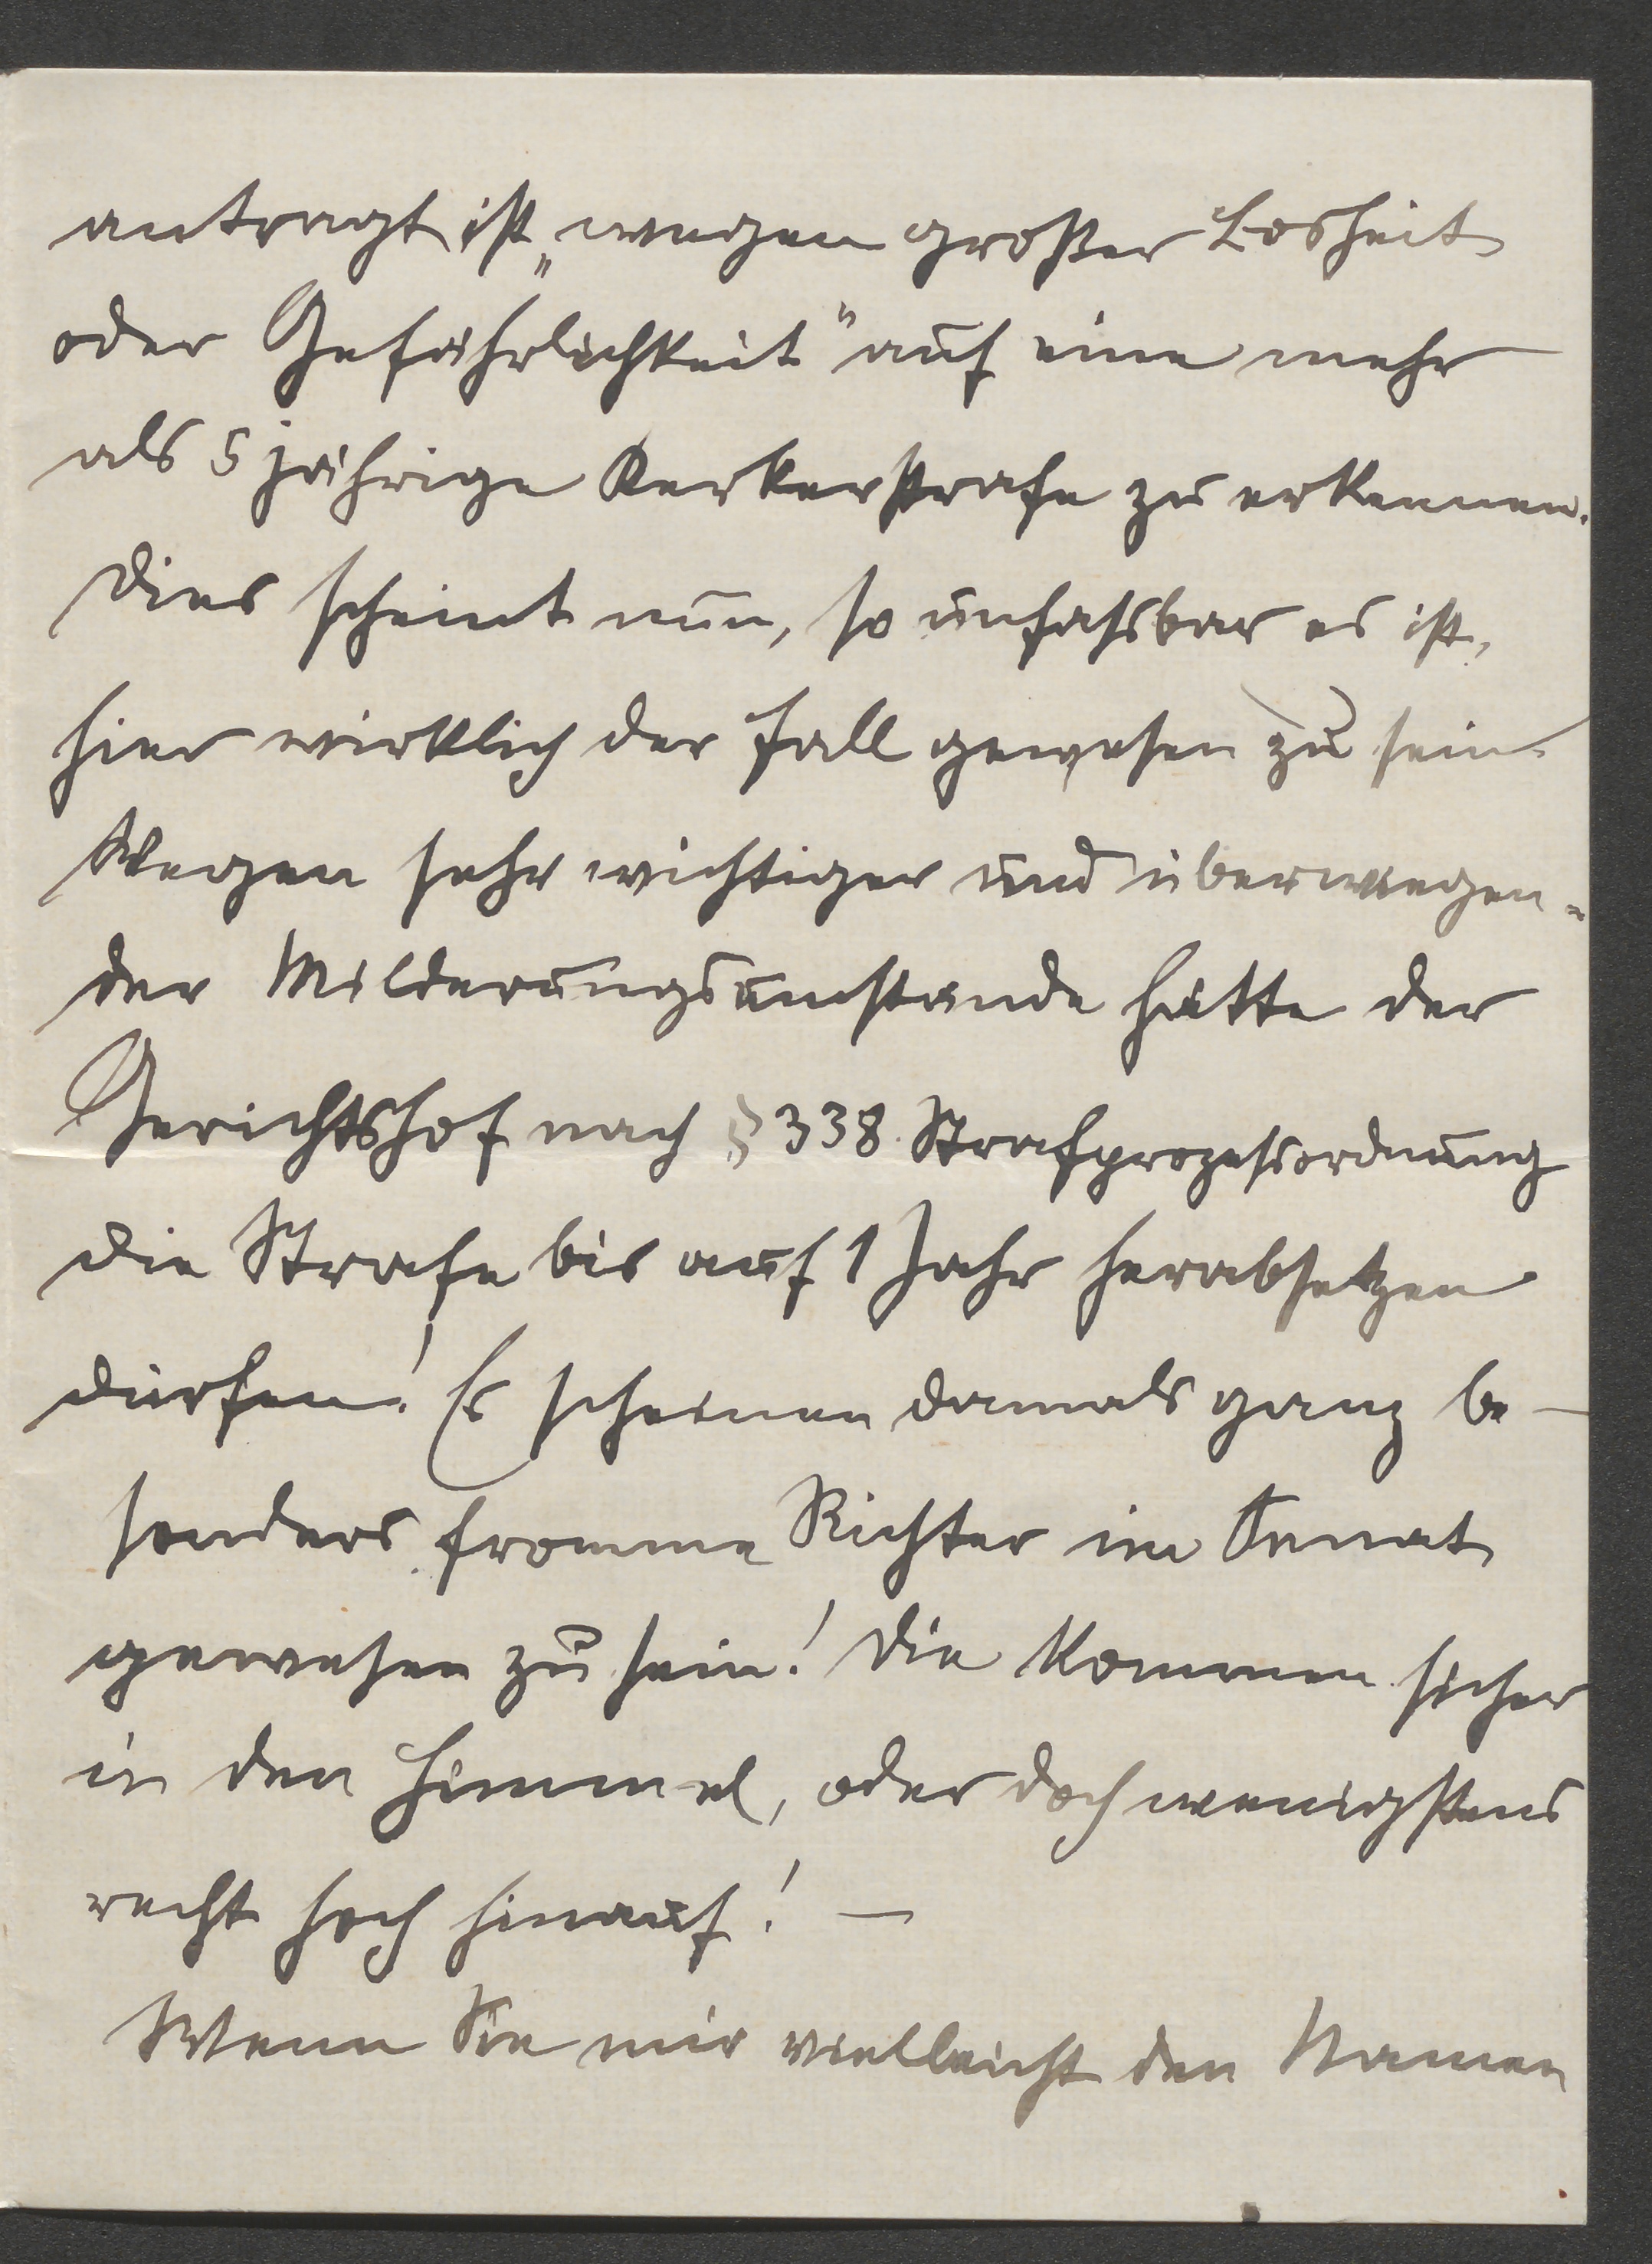 antragt ist „wegen großer Bosheit
oder Gefährlichkeit" auf eine mehr
als 5 jährige Kerkerstrafe zu erkennen.
Dies scheint nun, so unfassbar es ist,
hier wirklich der Fall gewesen zu sein.
Wegen sehr wichtiger und überwiegen=
der Milderungsumstände hätte der
Gerichtshof nach § 338 Strafprozessordnung
die Strafe bis auf 1 Jahr herabsetzen
dürfen! Es scheinen damals ganz be-
sonders fromme Richter im Senat
gewesen zu sein! Die kommen sicher
in den Himmel, oder doch wenigstens
recht hoch hinauf! —
Wenn Sie mir vielleicht den Namen